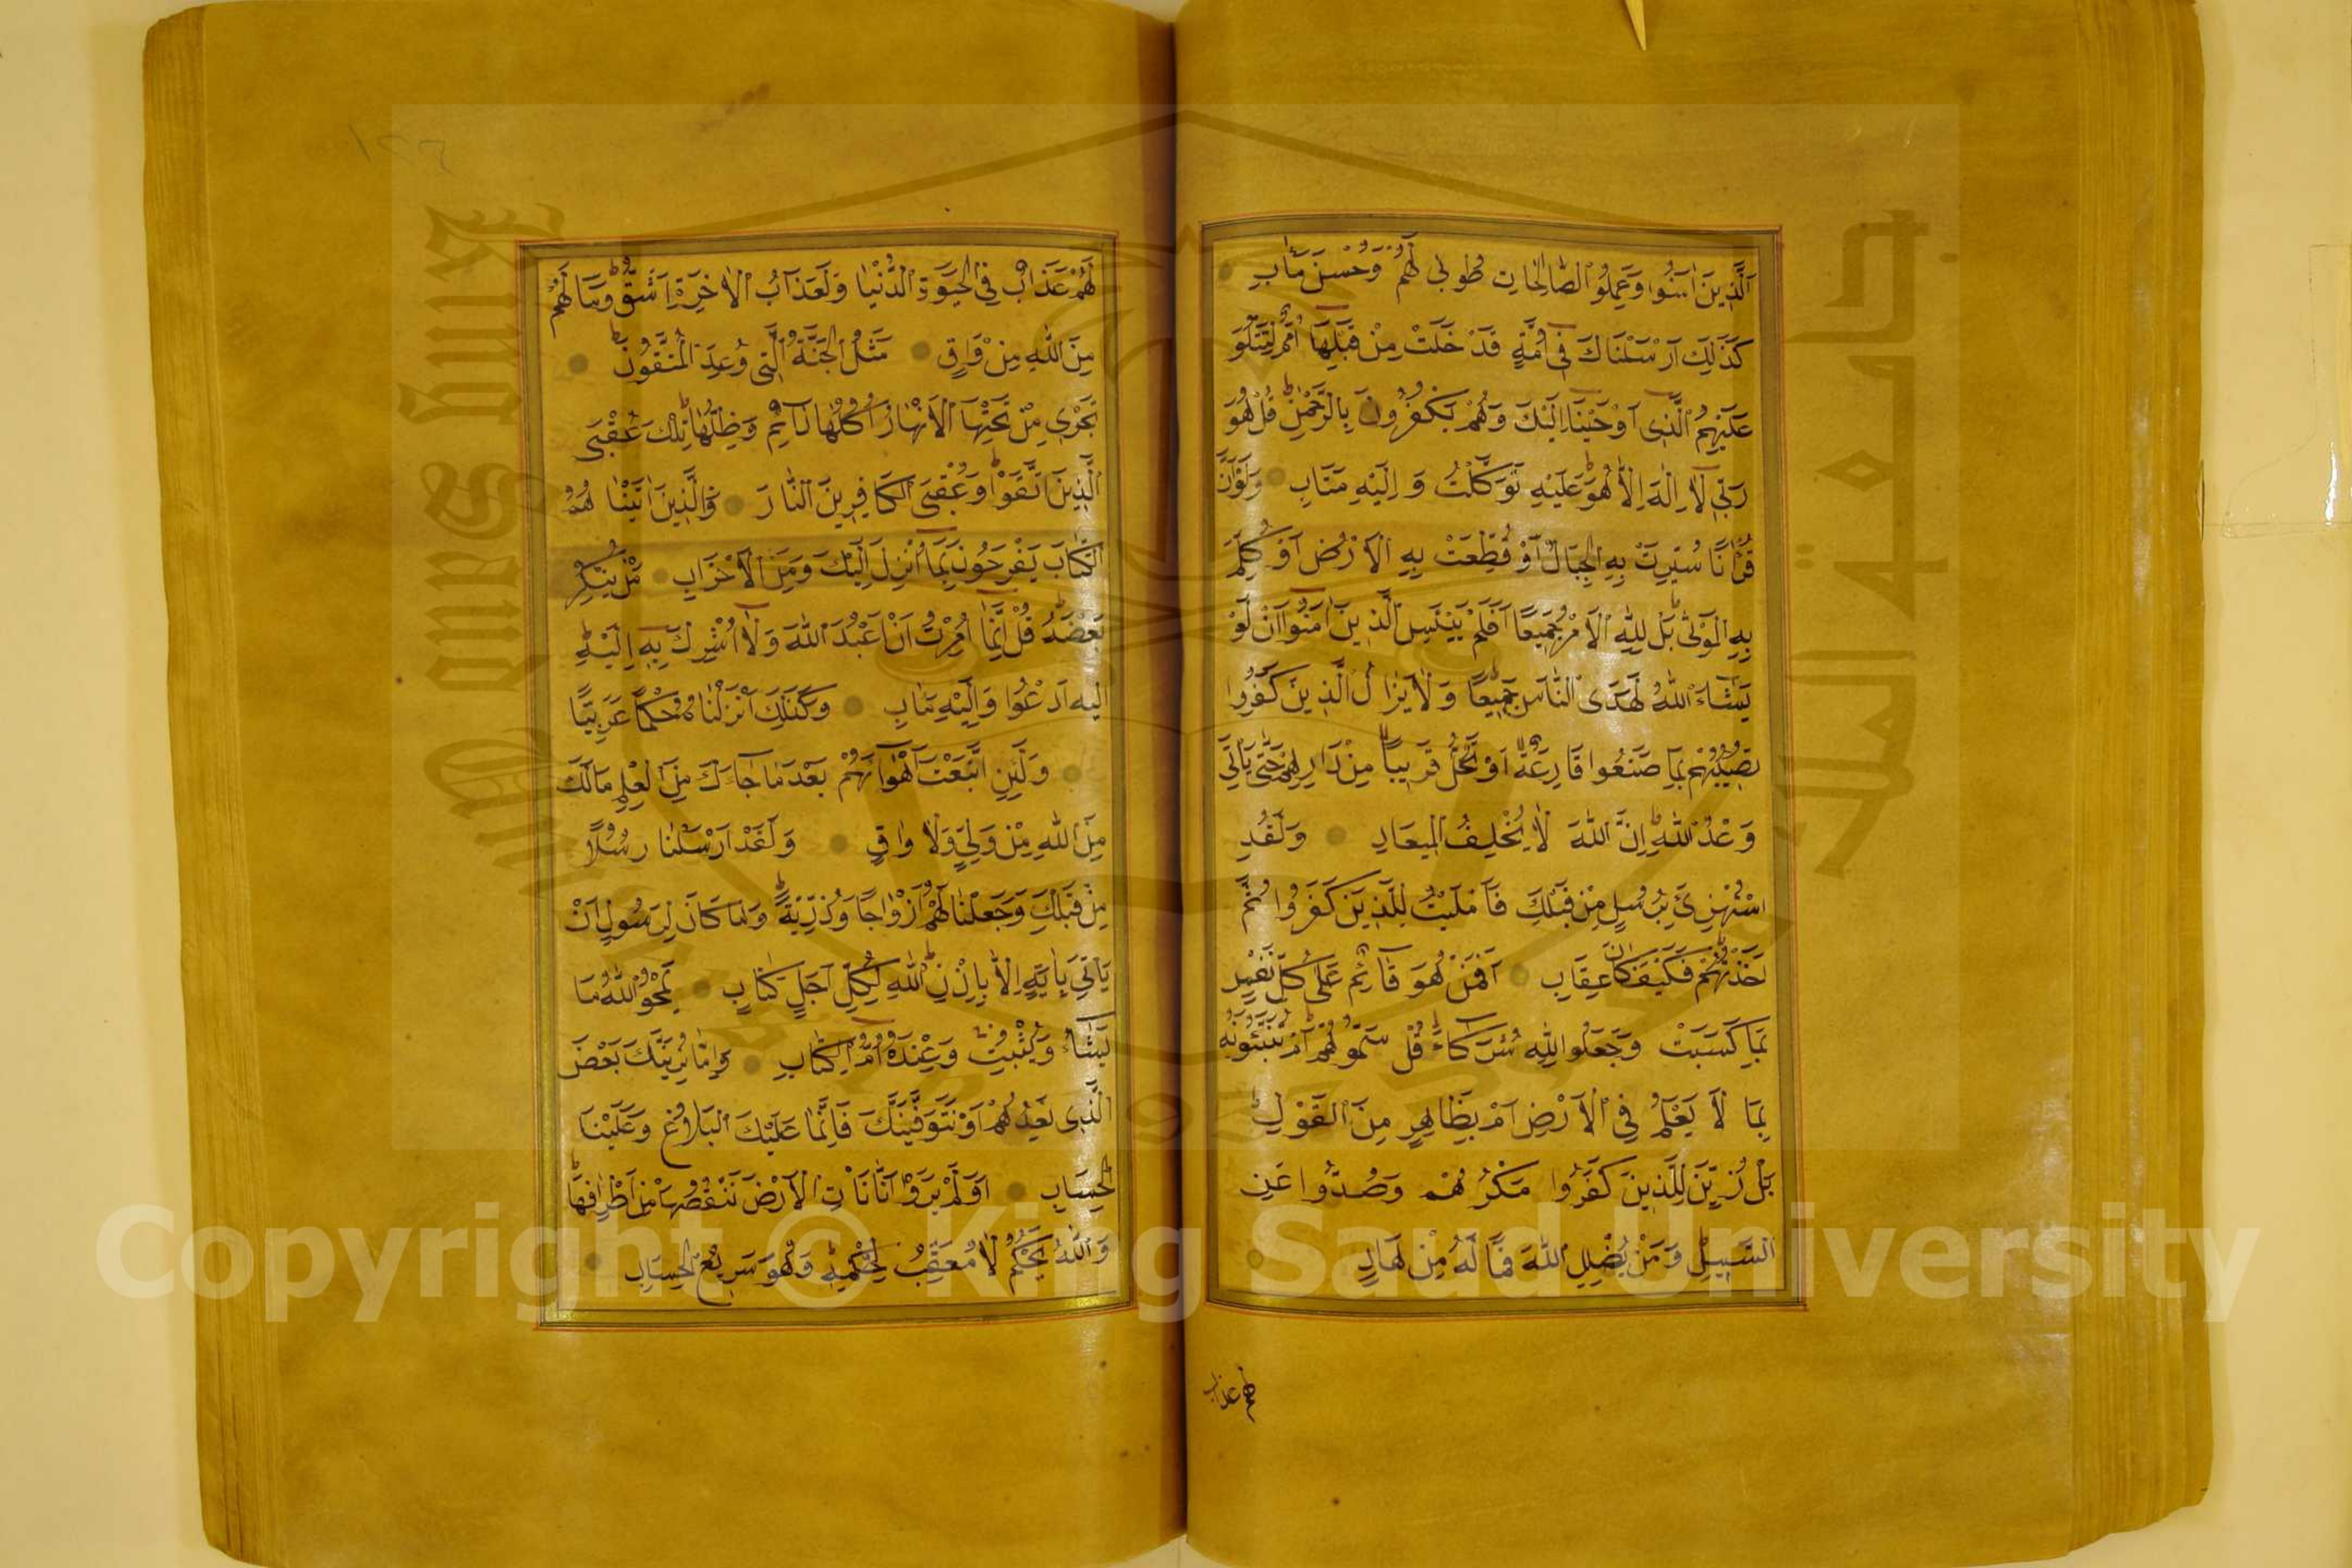 اَلَّذِينَ اٰمَنُوا وَعَمِلُوا الصَّالِحَاتِ طُوبٰى لَهُمْ وَحُسْنُ مَاٰبٍ
كَذٰلِكَ اَرْسَلْنَاكَ فِى اُمَّةٍ قَدْ خَلَتْ مِنْ قَبْلِهَا اُمَمٌ لِتَتْلُوَ
عَلَيْهِمُ الَّذِى اَوْحَيْنَا اِلَيْكَ وَهُمْ يَكْفُرُونَ بِالرَّحْمٰنِ قُلْ هُوَ
رَبِّى لَا اِلٰهَ اِلَّا هُوَ عَلَيْهِ تَوَكَّلْتُ وَاِلَيْهِ مَتَابِ وَلَوْاَنَّ
قُرْاٰنًا سُيِّرَتْ بِهِ الْجِبَالُ اَوْ قُطِّعَتْ بِهِ الْاَرْضُ اَوْ كُلِّمَ
بِهِ الْمَوْتٰى بَلْ لِلّٰهِ الْاَمْرُ جَمِيعًا اَفَلَمْ يَيْئَسِ الَّذِينَ اٰمَنُوا اَنْ لَوْ
يَشَاءُ اللّٰهُ لَهَدَى النَّاسَ جَمِيعًا وَلَا يَزَالُ الَّذِينَ كَفَرُوا
تُصِيبُهُمْ بِمَا صَنَعُوا قَارِعَةٌ اَوْ تَحُلُّ قَرِيبًا مِنْ دَارِهِمْ حَتّٰى يَاْتِىَ
وَعْدُ اللّٰهِ اِنَّ اللّٰهَ لَا يُخْلِفُ الْمِيعَادِ وَلَقَدِ
اسْتُهْزِئَ بِرُسُلٍ مِنْ قَبْلِكَ فَاَمْلَيْتُ لِلَّذِينَ كَفَرُوا ثُمَّ
اَخَذْتُهُمْ فَكَيْفَ كَانَ عِقَابِ اَفَمَنْ هُوَ قَائِمٌ عَلٰى كُلِّ نَفْسٍ
بِمَا كَسَبَتْ وَجَعَلُوا لِلّٰهِ شُرَكَاءَ قُلْ سَمُّوهُمْ اَمْ تُنَبِّئُونَهُ
بِمَا لَا يَعْلَمُ فِى الْاَرْضِ اَمْ بِظَاهِرٍ مِنَ الْقَوْلِ
بَلْ زُيِّنَ لِلَّذِينَ كَفَرُوا مَكْرُهُمْ وَصُدُّوا عَنِ
السَّبِيلِ وَمَنْ يُضْلِلِ اللّٰهُ فَمَا لَهُ مِنْ هَادٍ
لهم عذاب
١٢٤
لَهُمْ عَذَابٌ فِى الْحَيٰوةِ الدُّنْيَا وَلَعَذَابُ الْاٰخِرَةِ اَشَقُّ وَمَا لَهُمْ
مِنَ اللّٰهِ مِنْ وَاقٍ مَثَلُ الْجَنَّةِ الَّتِى وُعِدَ الْمُتَّقُونَ
تَجْرِى مِنْ تَحْتِهَا الْاَنْهَارُ اُكُلُهَا دَائِمٌ وَظِلُّهَا تِلْكَ عُقْبَى
الَّذِينَ اتَّقَوْا وَعُقْبَى الْكَافِرِينَ النَّارَ وَالَّذِينَ اٰتَيْنَا هُمُ
الْكِتَابَ يَفْرَحُونَ بِمَا اُنْزِلَ اِلَيْكَ وَمِنَ الْاَحْزَابِ مَنْ يُنْكِرُ
بَعْضَهُ قُلْ اِنَّمَا اُمِرْتُ اَنْ اَعْبُدَ اللّٰهَ وَلَا اُشْرِكَ بِهِ اِلَيْهِ
اليه اَدْعُوا وَاِلَيْهِ مَاٰبِ وَكَذٰلِكَ اَنْزَلْنَاهُ حُكْمًا عَرَبِيًّا
وَلَئِنِ اتَّبَعْتَ اَهْوَاءَهُمْ بَعْدَ مَا جَاءَكَ مِنَ الْعِلْمِ مَالَكَ
مِنَ اللّٰهِ مِنْ وَلِيٍّ وَلَا وَاقٍ وَلَقَدْ اَرْسَلْنَا رُسُلًا
مِنْ قَبْلِكَ وَجَعَلْنَا لَهُمْ اَزْوَاجًا وَذُرِّيَّةً وَمَا كَانَ لِرَسُولٍ اَنْ
يَاْتِىَ بِاٰيَةٍ اِلَّا بِاِذْنِ اللّٰهِ لِكُلِّ اَجَلٍ كِتَابٍ يَمْحُوا اللّٰهُ مَا
يَشَاءُ وَيُثْبِتُ وَعِنْدَهُ اُمُّ الْكِتَابِ وَاِمَّا نُرِيَنَّكَ بَعْضَ
الَّذِى نَعِدُهُمْ اَوْ نَتَوَفَّيَنَّكَ فَاِنَّمَا عَلَيْكَ الْبَلَاغُ وَعَلَيْنَا
الْحِسَابِ اَوَلَمْ يَرَوْا اَنَّا نَاْتِى الْاَرْضَ نَنْقُصُهَا مِنْ اَطْرَافِهَا
وَاللّٰهُ يَحْكُمُ لَا مُعَقِّبَ لِحُكْمِهِ وَهُوَ سَرِيعُ الْحِسَابِ
King Saud University
جامعة الملك سعود
1957
Copyright © King Saud University